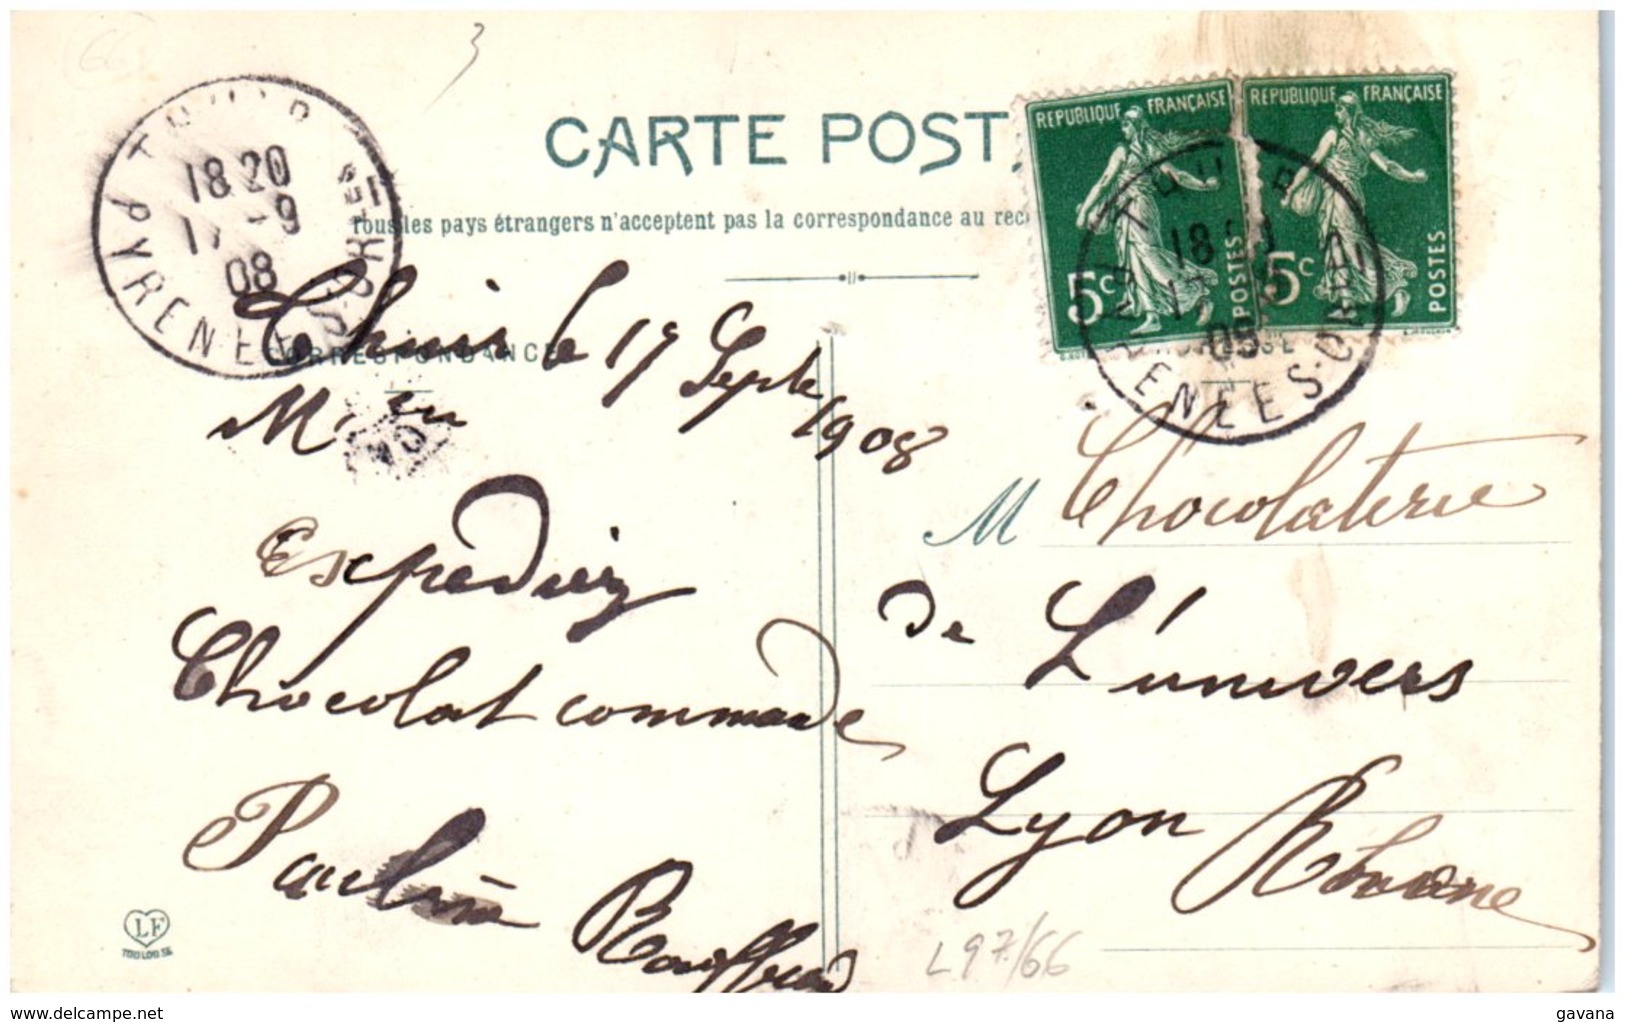 (66)
3
CARTE POST
Tous les pays étrangers n'acceptent pas la correspondance au rec
REPUBLIQUE FRANÇAISE
5c POSTES
REPUBLIQUE FRANÇAISE
5c POSTES
THUIR
18 20
17 -9
08
PYRENEES-ORles
THUIR
PYRENEES-OR
CORRESPONDANCE
Thuir le 17 Septe 1908
M.
Expediez
Chocolat commande
Paulin
M Chocolaterie
de L'univers
Lyon Rhone
LF
TOULOUSE
L97/66
delcampe.net
gavana